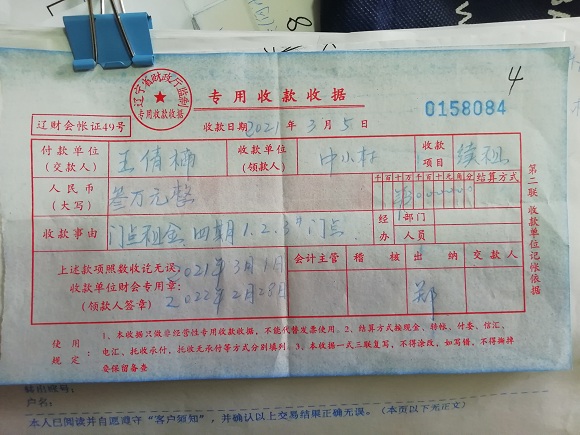 4
辽宁省财政厅监制
专用收款收据
专用收款收据
0158084
辽财会帐证49号
收款日期 2021年3月5日
付款单位(交款人) 王倩楠 收款单位(领款人) 中小村 收款项目 续租
人民币(大写) 叁万元整 千百十万千百十元角分 结算方式
收款事由 门点租金 四期1.2.3#门点 经办 部门 人员
上述款项照数收讫无误 2021年3月1日
收款单位财会专用章:
(领款人签章) 2022年2月28日
会计主管 稽核 出纳 交款人
郑
第二联 收款单位记帐依据
使用规定: 1、本收据只做非经营性专用收款收据,不能代替发票使用。2、结算方式按现金、转帐、付委、信汇、
电汇、托收承付、托收无承付等方式分别填列。3、本收据一式三联复写,不得涂改,如写错,不得撕掉
要保留备查
户名:
本人已阅读并自愿遵守“客户须知”,并确认以上交易结果正确无误。(本页以下无正文)